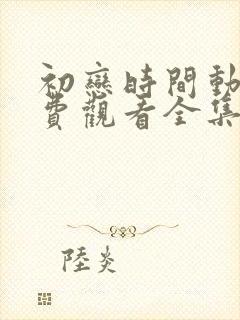 初戀時間動
費觀看全集
陸炎